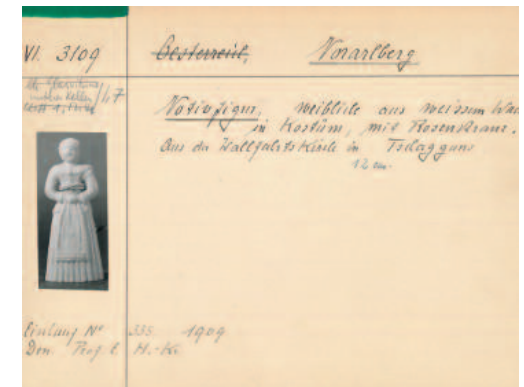 VI. 3109 Oesterreich, Vorarlberg
Votivfigur, weibliche aus weissem Wac
in Kostüm, mit Rosenkranz.
Aus der Wallfahrtskirche in Tschagguns
12 cm.
Einlauf Nº 335 1909
Don. Prof. E. H.-Kr.